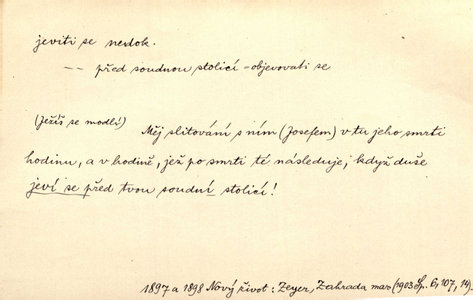 jeviti se nedok.
-- před soudnou stolicí - objevovati se
(Ježíš se modlí) Měj slitování s ním (Josefem) v tu jeho smrti
hodinu, a v hodině, jež po smrti té následuje, když duše
jeví se před tvou soudní stolicí!
1897 a 1898 Nový život: Zeyer, Zahrada mar. (1903 Sp. 6, 107, 19).